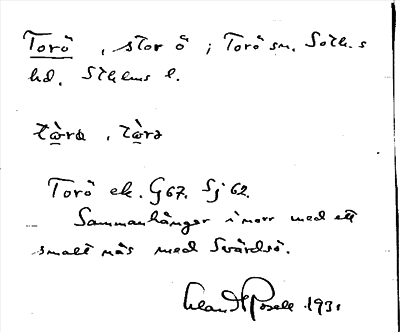 Torö, stor ö; Torö sn. Soth.s
hd. Sthlms l.
tò̱ra, tò̱rə
Torö ek. G67. Sj 62.
Sammanhänger i norr med ett
smalt näs med Svärdsö.
Rosell 1931